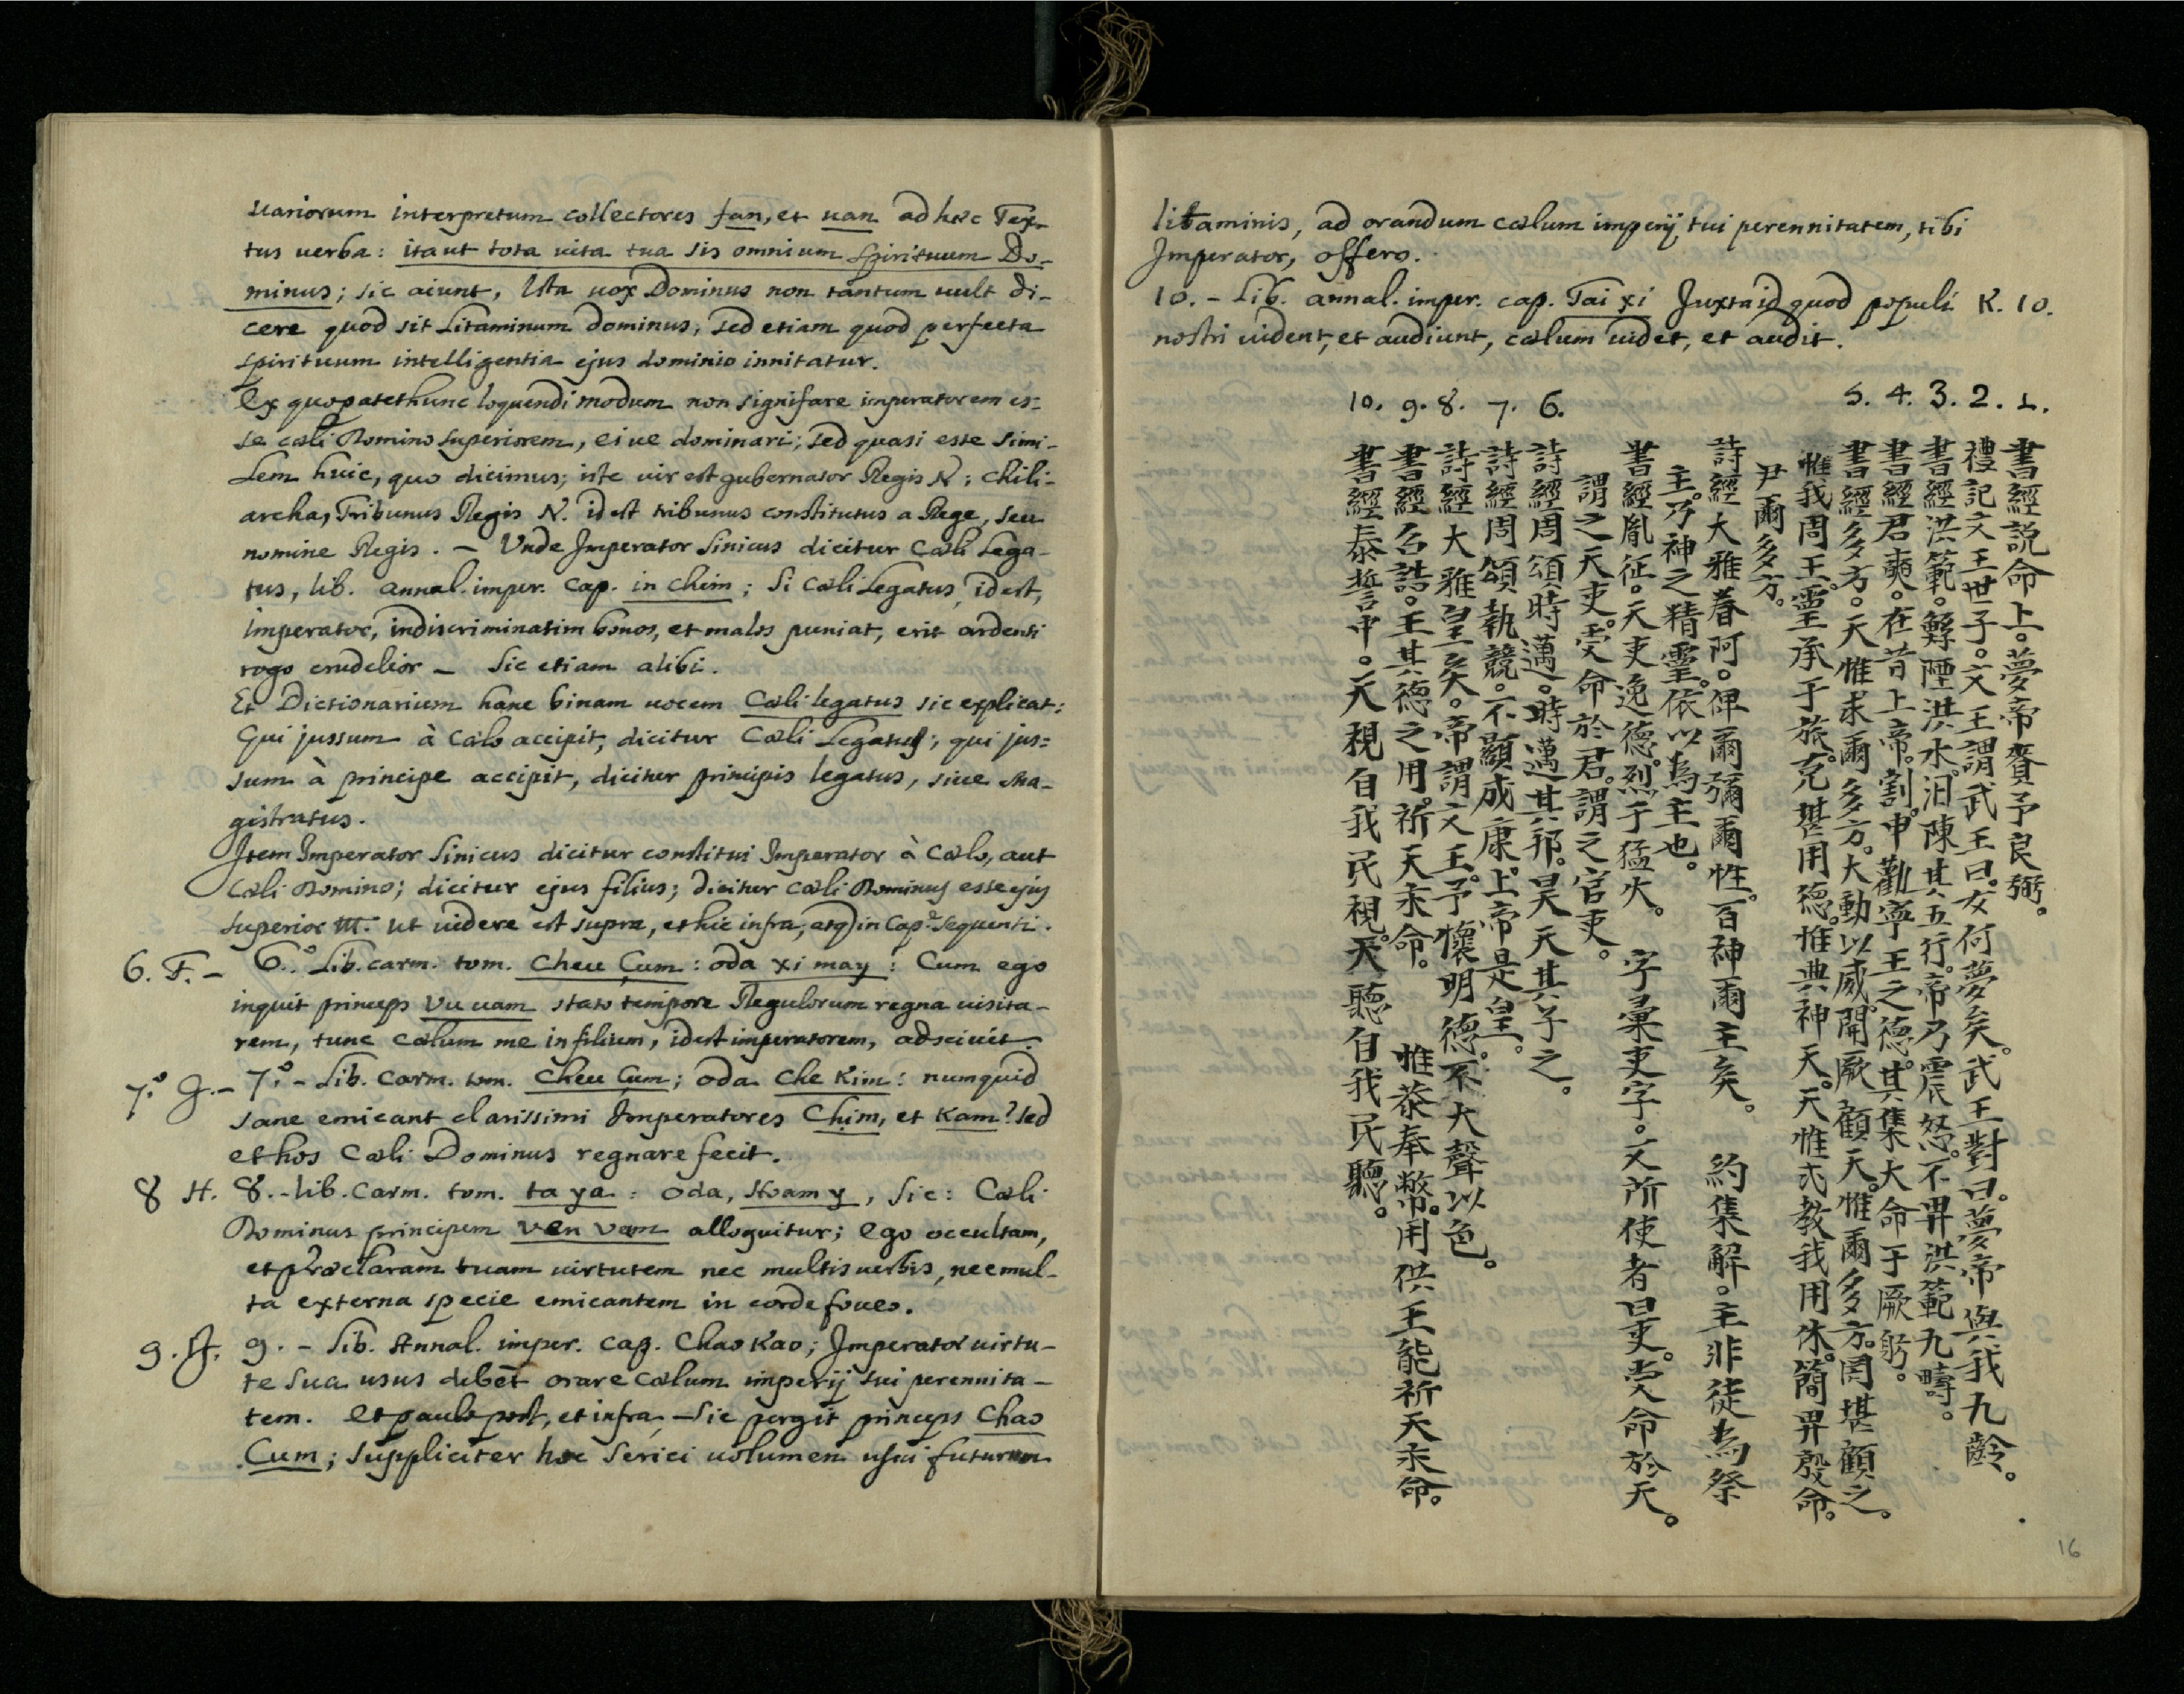 uariorum interpretum collectores fan, et uan ad hæc Tex-
tus uerba: ita ut tota uita tua sis omnium Spirituum Do-
minus; sic aiunt, Ista uox Dominus non tantum uult di-
cere quod sit Litaminum dominus, sed etiam quod perfecta
spirituum intelligentia ejus dominio innitatur.
Ex quo patet hunc loquendi modum non signifare imperatorem es=
se cæli Domino Superiorem, ei ue dominari; sed quasi esse simi-
lem huic, quo dicimus; iste vir est gubernator Regis N; chili-
archa, Tribunus Regis N. id est tribunus constitutus a Rege, seu
nomine Regis. - Unde Imperator Sinicus dicitur Cæli Lega-
tus, lib. annal. imper. cap. in chim; Si Cæli Legatus, id est,
imperator, indiscriminatim bonos, et malos puniat, erit ardenti
rogo crudelior - Sic etiam alibi.
Et Dictionarium hanc binam uocem Cæli legatus sic explicat:
Qui jussum à Cælo accipit, dicitur Cæli Legatus; qui jus=
sum à principe accipit, dicitur principis legatus, siue Ma-
gistratus.
Item Imperator Sinicus dicitur constitui Imperator à Cælo, aut
Cæli Domino; dicitur ejus filius; dicitur cæli Dominus esse ejus
superior &c. ut uidere est supra, et hic infra, atq in Cap. Sequenti.
6. F. - 6.º Lib. carm. tom. Cheu Çum: oda xi may: Cum ego
inquit princeps Vu uam stato tempore Regulorum regna uisita-
rem, tunc Cælum me in filium, id est imperatorem, adsciuit.
7.º G. - 7.º - Lib. Carm. tom. Cheu Çum; oda Che Kim: numquid
sane emicant clarissimi Imperatores Chim, et Kam? sed
et hos Cæli Dominus regnare fecit.
8 H. 8. - lib. Carm. tom. ta ya: oda, Hoam y, Sic: Cæli
Dominus principem Ven Vam alloquitur; Ego occultam,
et præclaram tuam uirtutem nec multis uerbis, nec mul-
ta externa specie emicantem in corde foueo.
9. 9. - Lib. Annal. imper. cap. Chao Kao; Imperator uirtu-
te sua usus debet orare Cælum imperij sui perennita-
tem. et paulo post, et infra, - Sic pergit princeps Chao
Cum; suppliciter hoc Serici uolumen usui futurum
litaminis, ad orandum cælum imperij tui perennitatem, tibi
Imperator, offero.
10. - Lib. annal. imper. cap. Tai xi Juxta id quod populi K. 10.
nostri uident, et audiunt, cælum uidet, et audit.
10. 9. 8. 7. 6. 5. 4. 3. 2. 1.
書經說命上。夢帝賚予良弼。
禮記文王世子。文王謂武王曰。女何夢矣。武王對曰。夢帝與我九齡。
書經洪範。鯀陻洪水。汨陳其五行。帝乃震怒。不畀洪範九疇。
書經君奭。在昔上帝。割申勸寧王之德。其集大命于厥躬。
書經多方。天惟求爾多方。大動以威。開厥顧天。惟爾多方。罔堪顧之。
惟我周王。靈承于旅。克堪用德。惟典神天。天惟式教我用休。簡畀殷命。
尹爾多方。
詩經大雅卷阿。俾爾彌爾性。百神爾主矣。 約集解。主非徒為祭
主。乃神之精靈。依以為主也。
書經胤征。天吏逸德。烈于猛火。 字彙吏字。文所使者曰吏。受命於天。
謂之天吏。受命於君。謂之官吏。
詩經周頌時邁。時邁其邦。昊天其子之。
詩經周頌執競。不顯成康。上帝是皇。
詩經大雅皇矣。帝謂文王。予懷明德。不大聲以色。
書經召誥。王其德之用。祈天永命。 惟恭奉幣。用供王能祈天永命。
書經泰誓中。天視自我民視。天聽自我民聽。
16